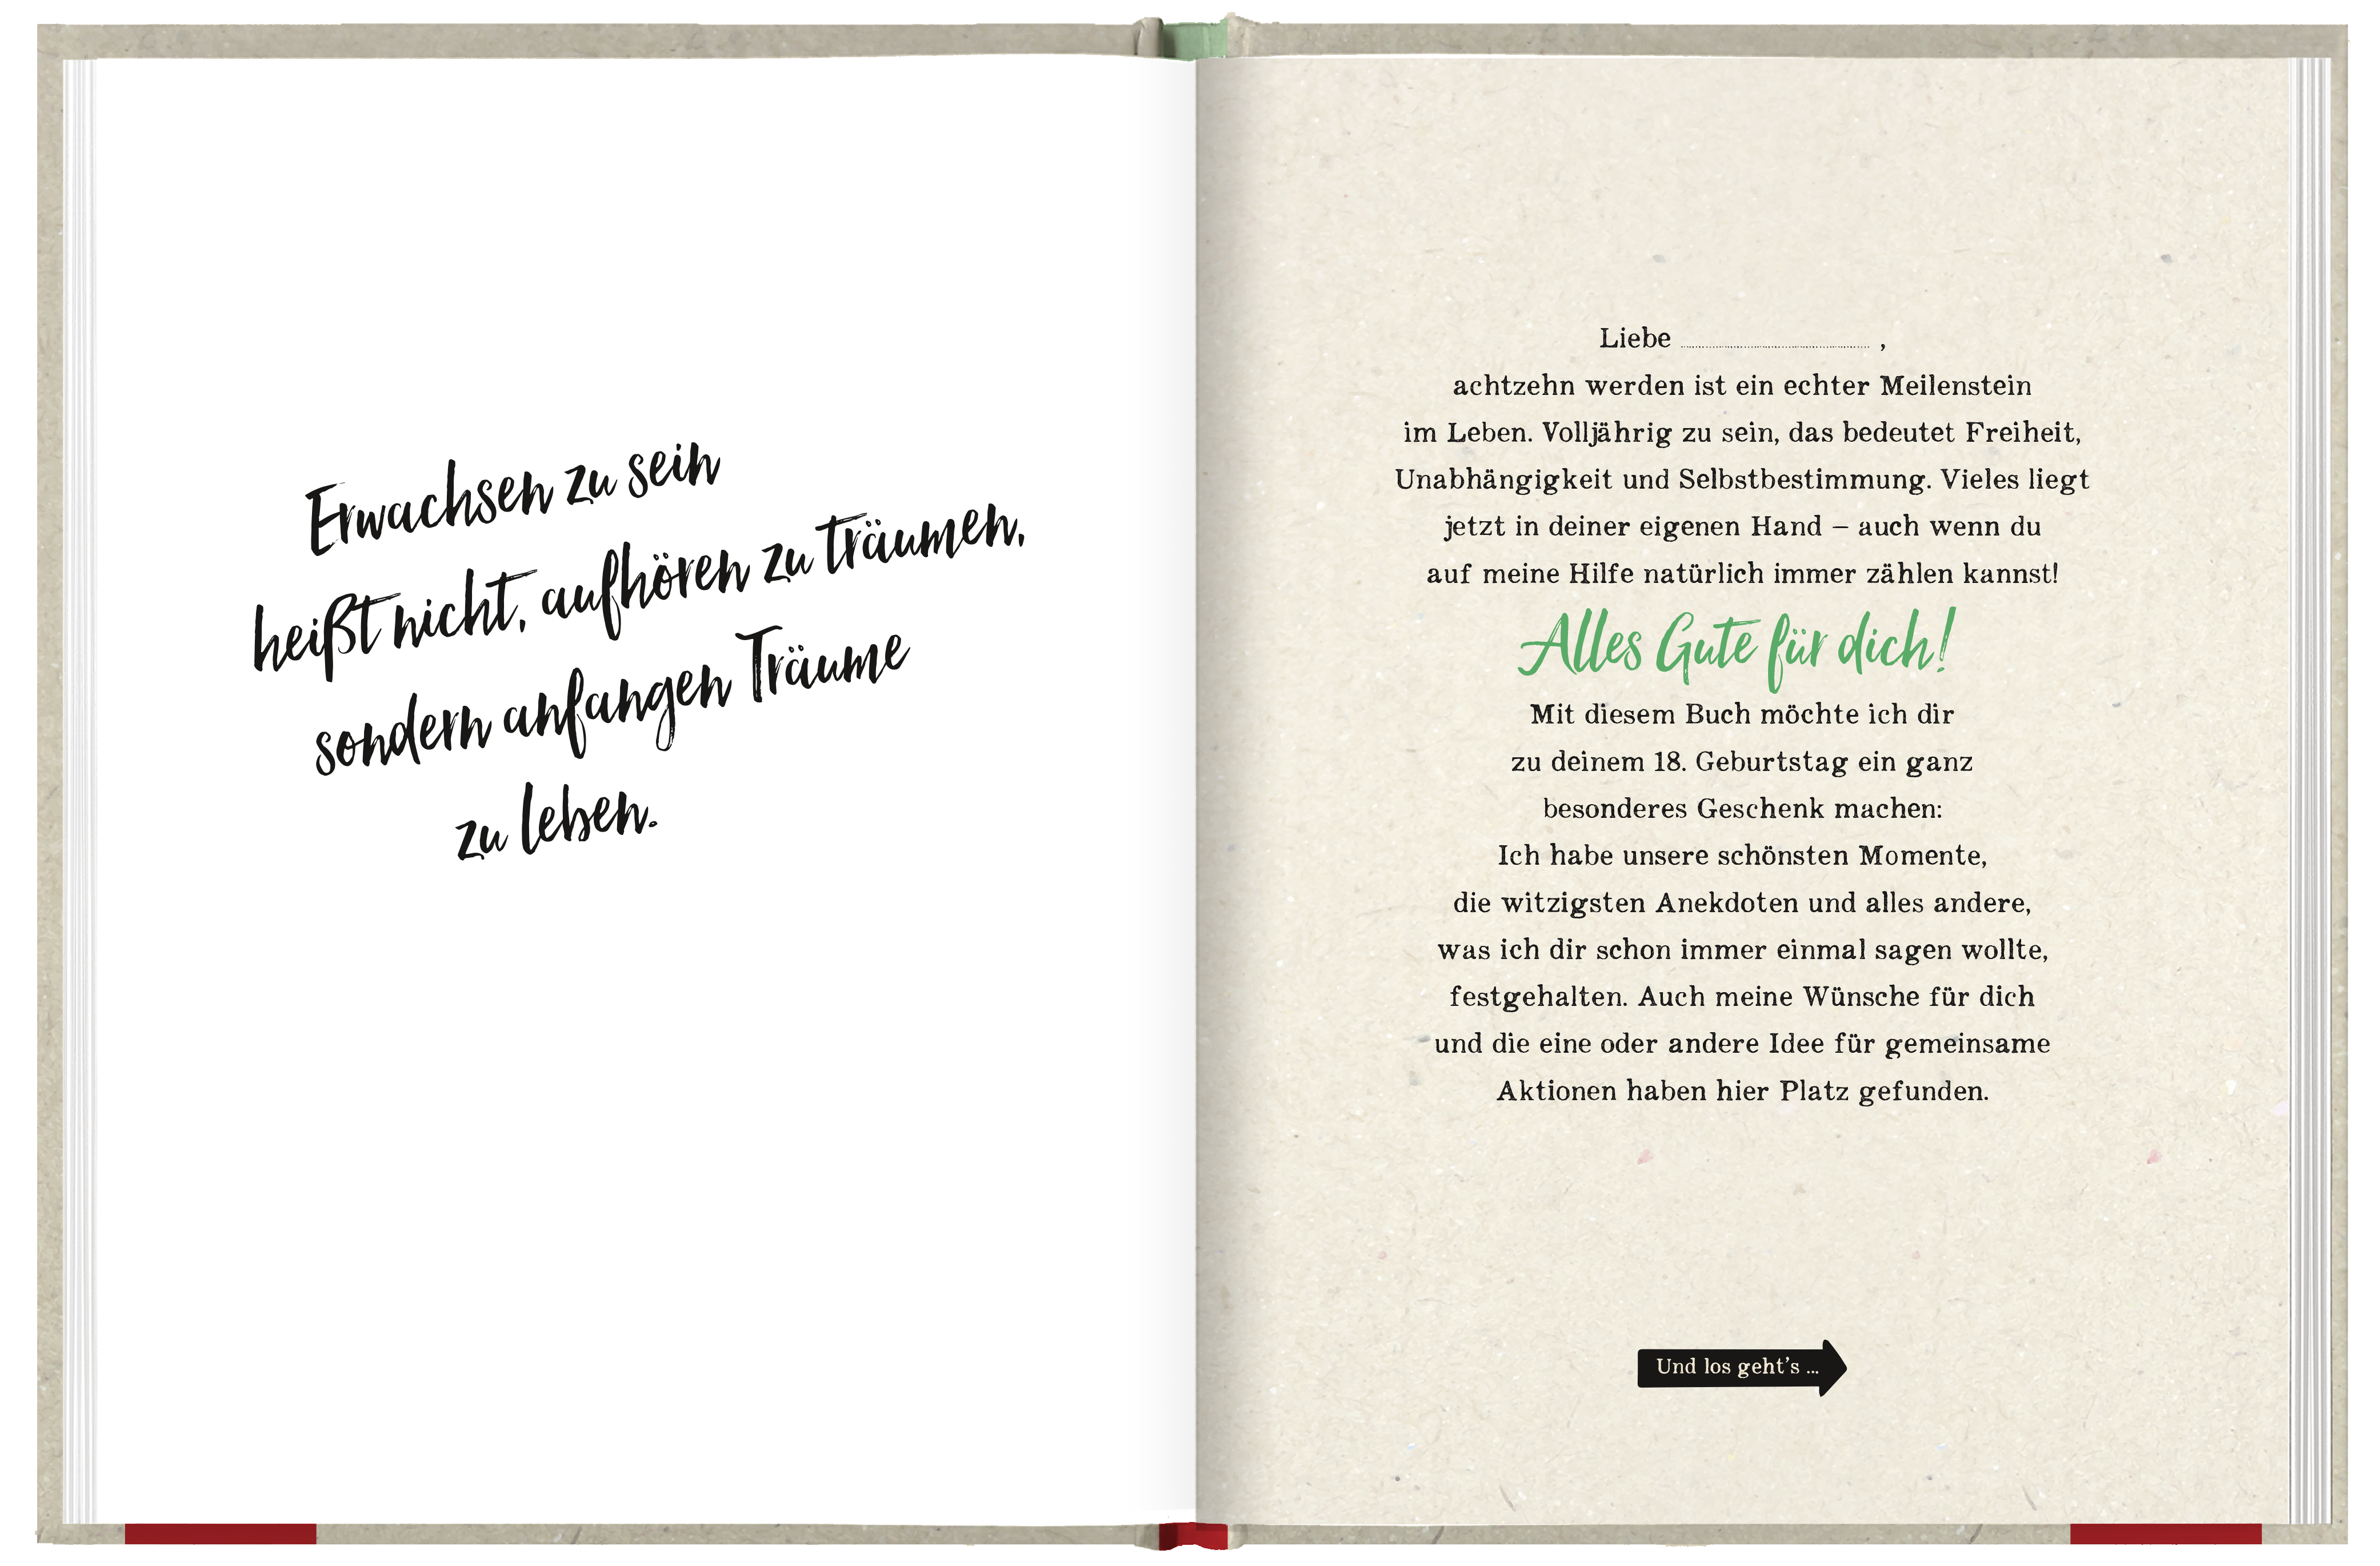 Erwachsen zu sein
heißt nicht, aufhören zu träumen,
sondern anfangen Träume
zu leben.
Liebe ..................................... ,
achtzehn werden ist ein echter Meilenstein
im Leben. Volljährig zu sein, das bedeutet Freiheit,
Unabhängigkeit und Selbstbestimmung. Vieles liegt
jetzt in deiner eigenen Hand – auch wenn du
auf meine Hilfe natürlich immer zählen kannst!
Alles Gute für dich!
Mit diesem Buch möchte ich dir
zu deinem 18. Geburtstag ein ganz
besonderes Geschenk machen:
Ich habe unsere schönsten Momente,
die witzigsten Anekdoten und alles andere,
was ich dir schon immer einmal sagen wollte,
festgehalten. Auch meine Wünsche für dich
und die eine oder andere Idee für gemeinsame
Aktionen haben hier Platz gefunden.
Und los geht's ...